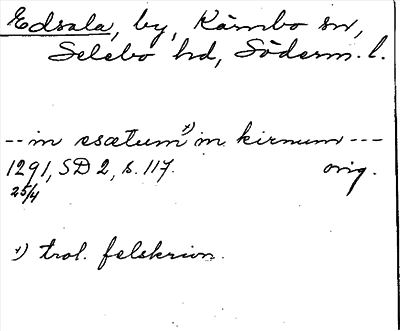 Edsala, by, Kärnbo sn,
Selebo hd, Söderm. l.
-- in esætum x) in kirnum ---
1291, SD 2, s. 117. orig.
25/4
x) trol. felskrivn.